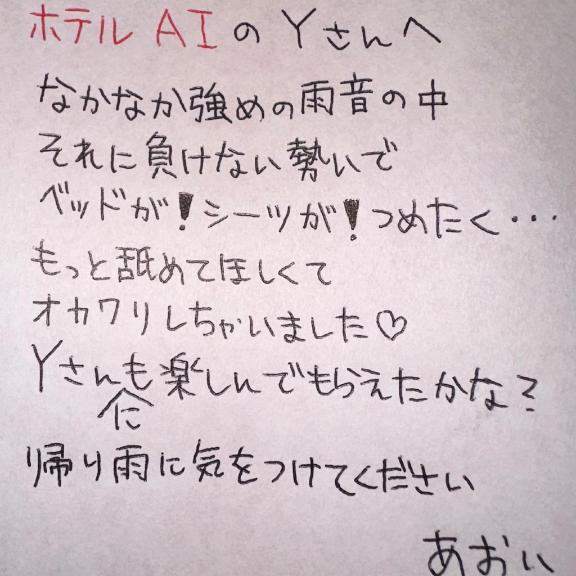 ホテル AIの Yさんへ
なかなか強めの雨音の中
それに負けない勢いで
ベッドが!シーツが!つめたく・・・
もっと舐めてほしくて
オカワリしちゃいました♡
Yさんにも楽しんでもらえたかな?
帰り雨に気をつけてください
あおい